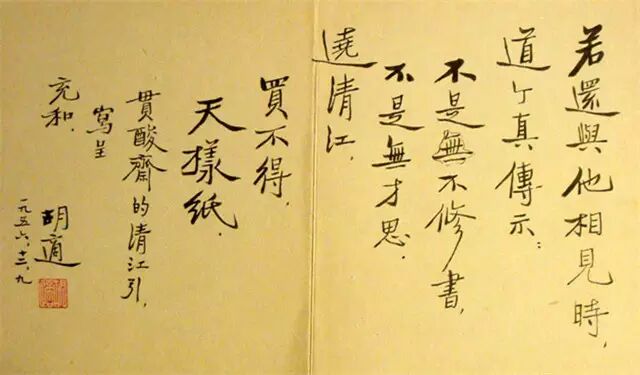 若還與他相見時，
道个真傳示：
不是無不修書，
不是無才思，
遶清江，
買不得，
天樣紙．
貫酸齋的清江引，
寫呈
充和．
胡適
一九五六、十二、九